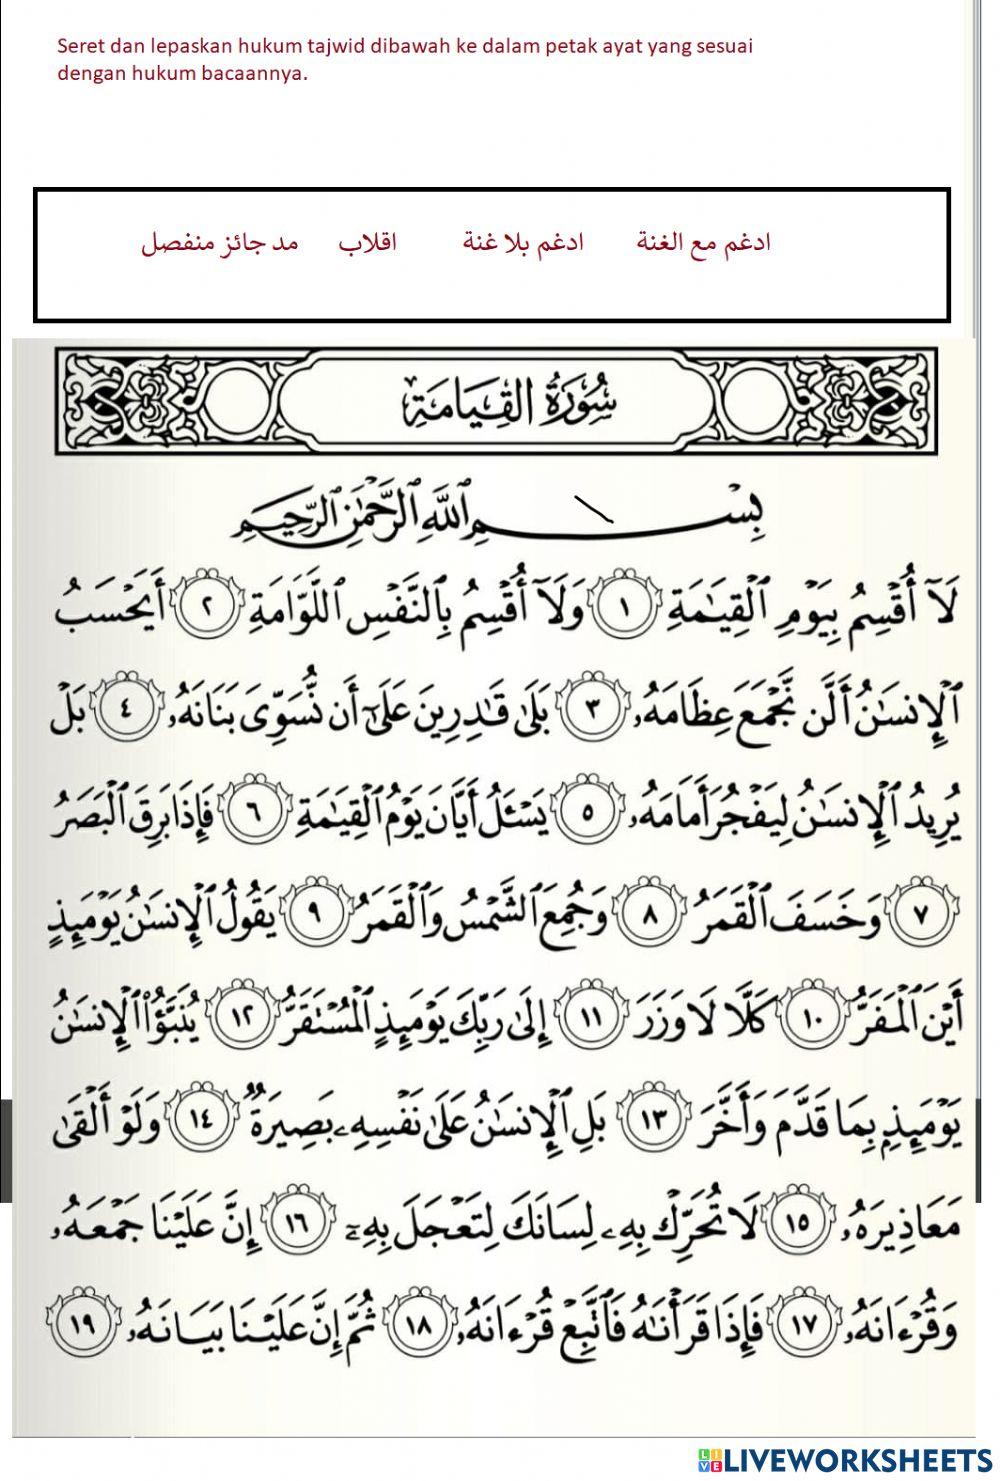 Seret dan lepaskan hukum tajwid dibawah ke dalam petak ayat yang sesuai
dengan hukum bacaannya.
ادغم مع الغنة ادغم بلا غنة اقلاب مد جائز منفصل
سُورَةُ الْقِيَامَةِ
بِسْمِ ٱللَّهِ ٱلرَّحْمَٰنِ ٱلرَّحِيمِ
لَآ أُقْسِمُ بِيَوْمِ ٱلْقِيَٰمَةِ ١ وَلَآ أُقْسِمُ بِٱلنَّفْسِ ٱللَّوَّامَةِ ٢ أَيَحْسَبُ
ٱلْإِنسَٰنُ أَلَّن نَّجْمَعَ عِظَامَهُۥ ٣ بَلَىٰ قَٰدِرِينَ عَلَىٰٓ أَن نُّسَوِّىَ بَنَانَهُۥ ٤ بَلْ
يُرِيدُ ٱلْإِنسَٰنُ لِيَفْجُرَ أَمَامَهُۥ ٥ يَسْـَٔلُ أَيَّانَ يَوْمُ ٱلْقِيَٰمَةِ ٦ فَإِذَا بَرِقَ ٱلْبَصَرُ
٧ وَخَسَفَ ٱلْقَمَرُ ٨ وَجُمِعَ ٱلشَّمْسُ وَٱلْقَمَرُ ٩ يَقُولُ ٱلْإِنسَٰنُ يَوْمَئِذٍ
أَيْنَ ٱلْمَفَرُّ ١٠ كَلَّا لَا وَزَرَ ١١ إِلَىٰ رَبِّكَ يَوْمَئِذٍ ٱلْمُسْتَقَرُّ ١٢ يُنَبَّؤُا۟ ٱلْإِنسَٰنُ
يَوْمَئِذٍۭ بِمَا قَدَّمَ وَأَخَّرَ ١٣ بَلِ ٱلْإِنسَٰنُ عَلَىٰ نَفْسِهِۦ بَصِيرَةٌ ١٤ وَلَوْ أَلْقَىٰ
مَعَاذِيرَهُۥ ١٥ لَا تُحَرِّكْ بِهِۦ لِسَانَكَ لِتَعْجَلَ بِهِۦٓ ١٦ إِنَّ عَلَيْنَا جَمْعَهُۥ
وَقُرْءَانَهُۥ ١٧ فَإِذَا قَرَأْنَٰهُ فَٱتَّبِعْ قُرْءَانَهُۥ ١٨ ثُمَّ إِنَّ عَلَيْنَا بَيَانَهُۥ ١٩
LIVE LIVEWORKSHEETS